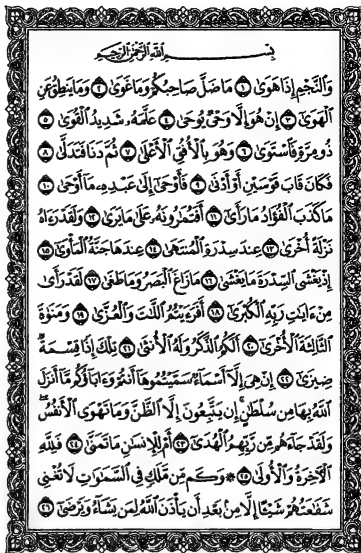 بِسْمِ ٱللَّهِ ٱلرَّحْمَٰنِ ٱلرَّحِيمِ
وَٱلنَّجْمِ إِذَا هَوَىٰ ١ مَا ضَلَّ صَاحِبُكُمْ وَمَا غَوَىٰ ٢ وَمَا يَنطِقُ عَنِ
ٱلْهَوَىٰ ٣ إِنْ هُوَ إِلَّا وَحْىٌ يُوحَىٰ ٤ عَلَّمَهُۥ شَدِيدُ ٱلْقُوَىٰ ٥
ذُو مِرَّةٍ فَٱسْتَوَىٰ ٦ وَهُوَ بِٱلْأُفُقِ ٱلْأَعْلَىٰ ٧ ثُمَّ دَنَا فَتَدَلَّىٰ ٨
فَكَانَ قَابَ قَوْسَيْنِ أَوْ أَدْنَىٰ ٩ فَأَوْحَىٰٓ إِلَىٰ عَبْدِهِۦ مَآ أَوْحَىٰ ١٠
مَا كَذَبَ ٱلْفُؤَادُ مَا رَأَىٰٓ ١١ أَفَتُمَٰرُونَهُۥ عَلَىٰ مَا يَرَىٰ ١٢ وَلَقَدْ رَءَاهُ
نَزْلَةً أُخْرَىٰ ١٣ عِندَ سِدْرَةِ ٱلْمُنتَهَىٰ ١٤ عِندَهَا جَنَّةُ ٱلْمَأْوَىٰٓ ١٥
إِذْ يَغْشَى ٱلسِّدْرَةَ مَا يَغْشَىٰ ١٦ مَا زَاغَ ٱلْبَصَرُ وَمَا طَغَىٰ ١٧ لَقَدْ رَأَىٰ
مِنْ ءَايَٰتِ رَبِّهِ ٱلْكُبْرَىٰٓ ١٨ أَفَرَءَيْتُمُ ٱللَّٰتَ وَٱلْعُزَّىٰ ١٩ وَمَنَوٰةَ
ٱلثَّالِثَةَ ٱلْأُخْرَىٰٓ ٢٠ أَلَكُمُ ٱلذَّكَرُ وَلَهُ ٱلْأُنثَىٰ ٢١ تِلْكَ إِذًا قِسْمَةٌ
ضِيزَىٰٓ ٢٢ إِنْ هِىَ إِلَّآ أَسْمَآءٌ سَمَّيْتُمُوهَآ أَنتُمْ وَءَابَآؤُكُم مَّآ أَنزَلَ
ٱللَّهُ بِهَا مِن سُلْطَٰنٍ إِن يَتَّبِعُونَ إِلَّا ٱلظَّنَّ وَمَا تَهْوَى ٱلْأَنفُسُ
وَلَقَدْ جَآءَهُم مِّن رَّبِّهِمُ ٱلْهُدَىٰٓ ٢٣ أَمْ لِلْإِنسَٰنِ مَا تَمَنَّىٰ ٢٤ فَلِلَّهِ
ٱلْءَاخِرَةُ وَٱلْأُولَىٰ ٢٥ ۞ وَكَم مِّن مَّلَكٍ فِى ٱلسَّمَٰوَٰتِ لَا تُغْنِى
شَفَٰعَتُهُمْ شَيْـًٔا إِلَّا مِنۢ بَعْدِ أَن يَأْذَنَ ٱللَّهُ لِمَن يَشَآءُ وَيَرْضَىٰٓ ٢٦